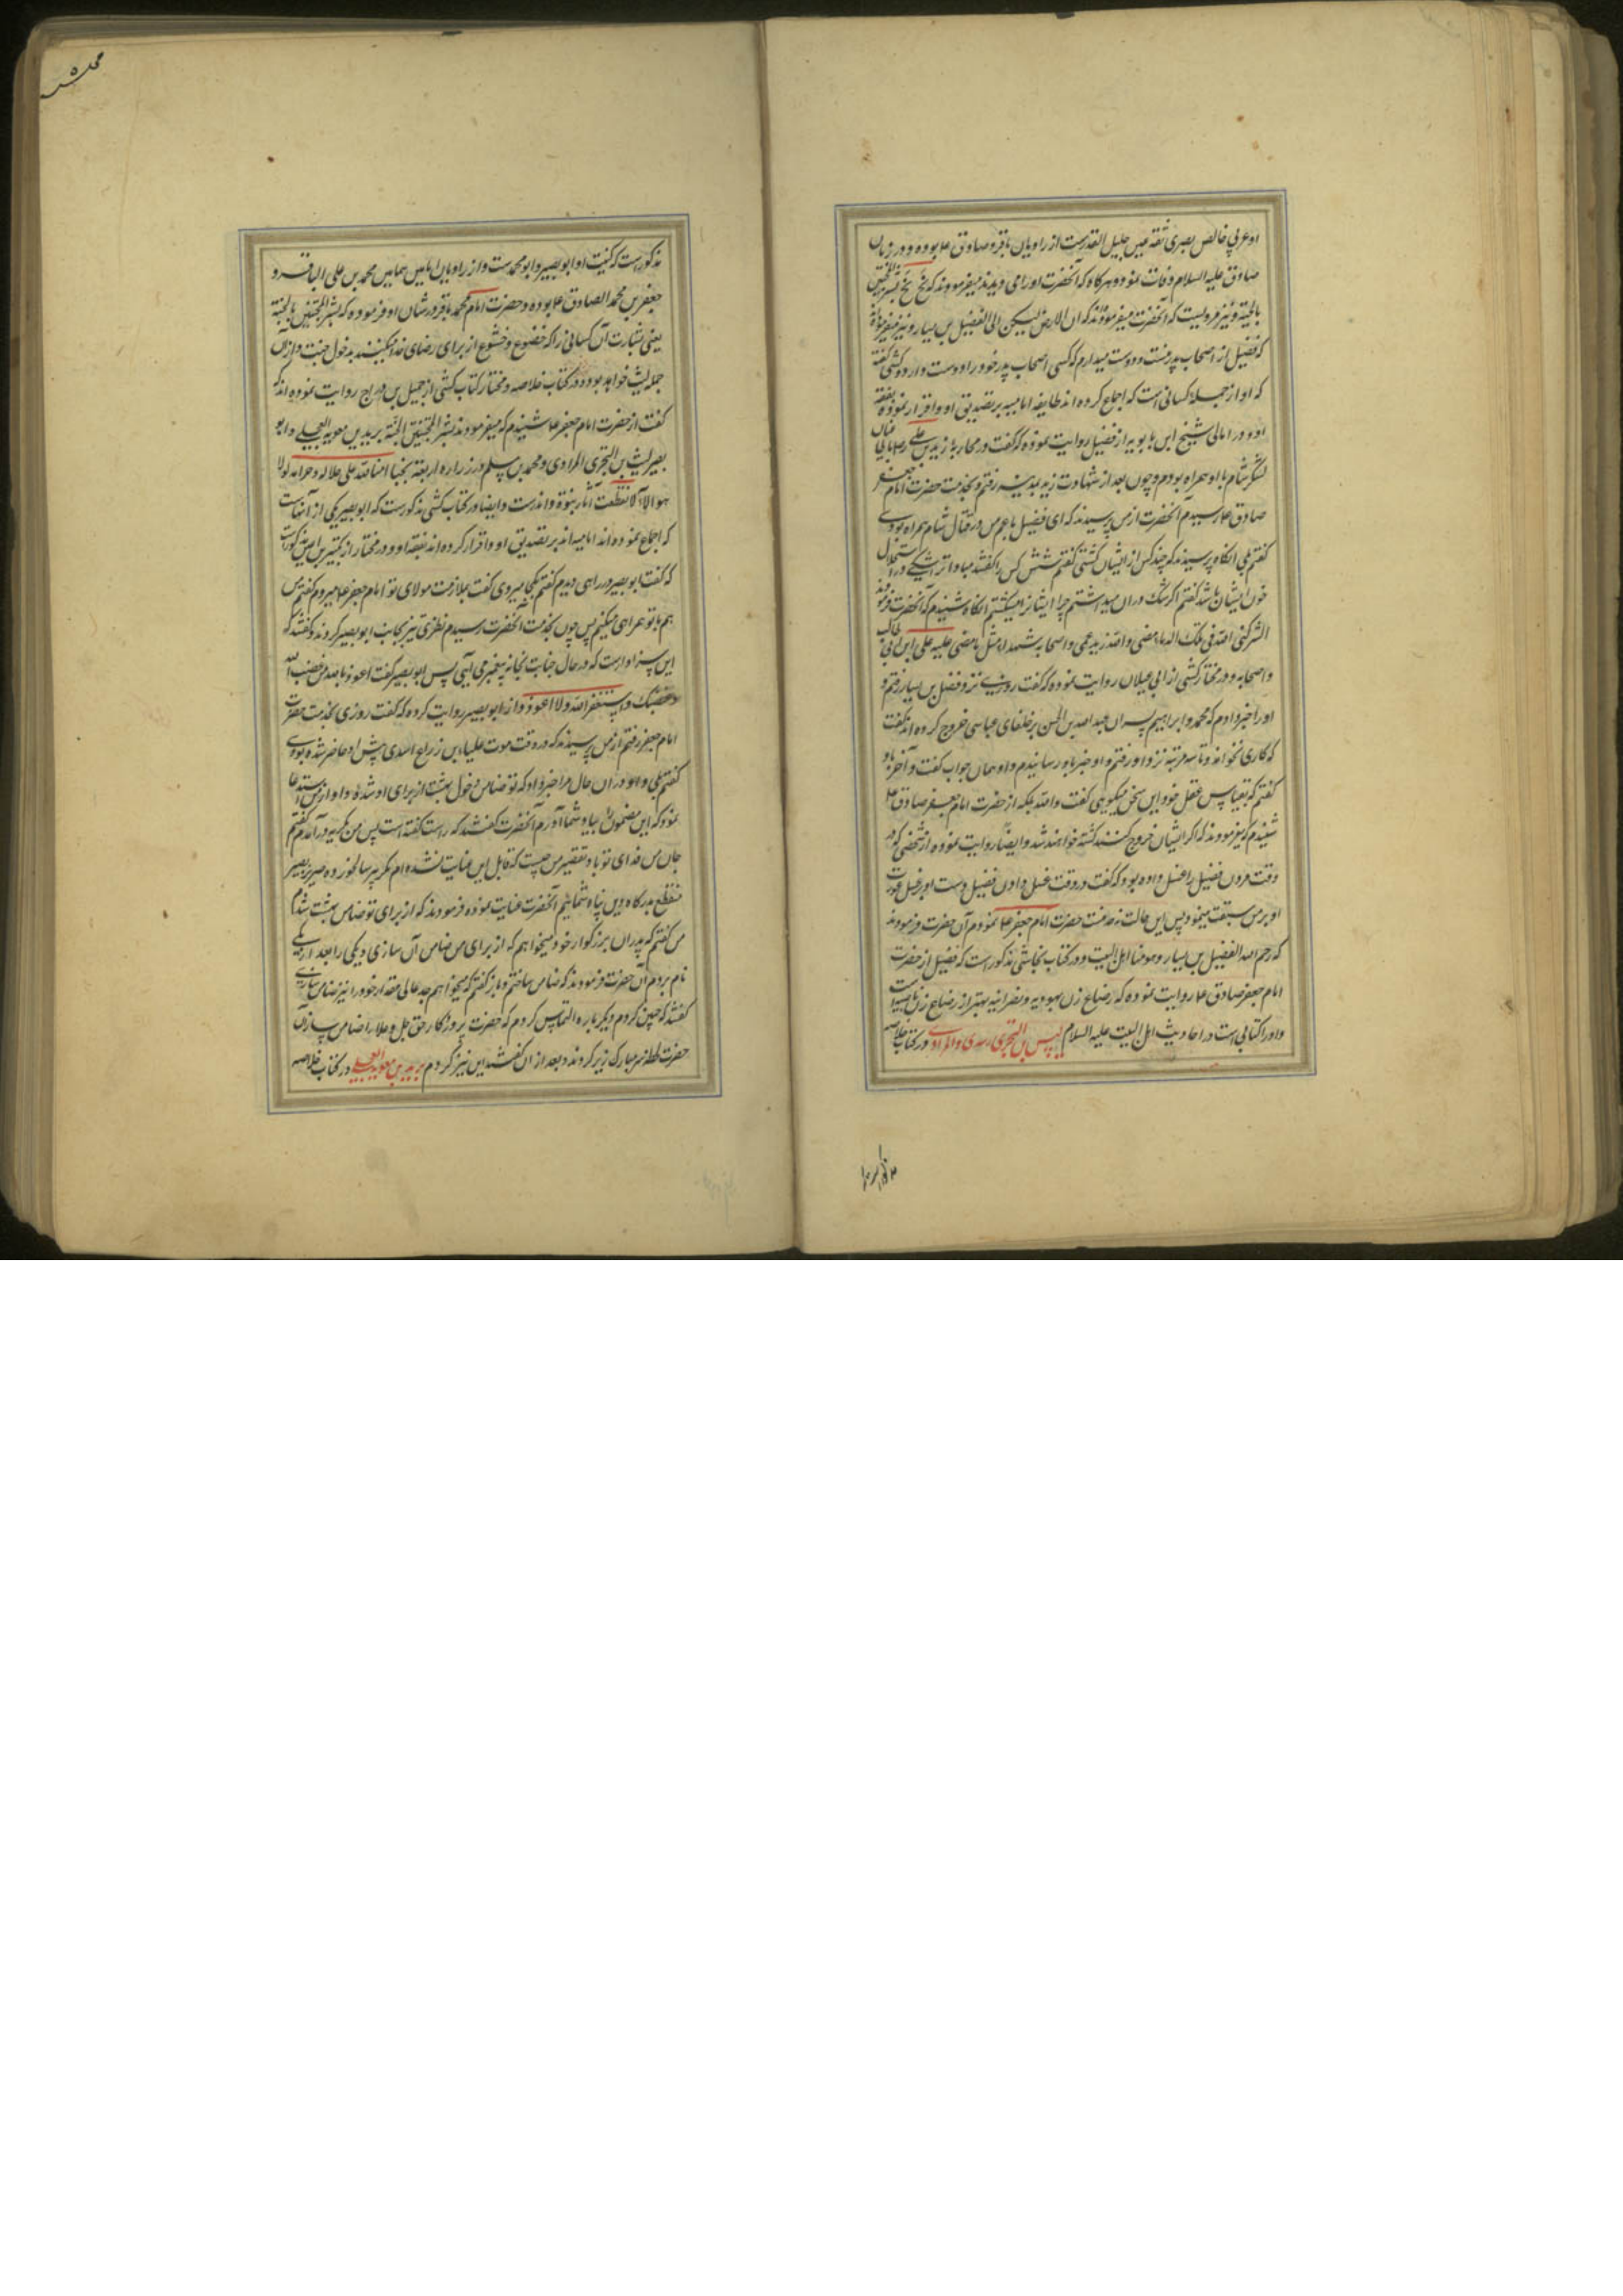 او عربی خالص بصری ثقه عین جلیل القدرست از راویان باقر و صادق ع بوده و در زمان
صادق علیه السلام وفات نموده و هرکاه که آنحضرت او را می دیدند میفرمودند که بخ بخ بشر المخبتین
بالجنة و نیز مرویست که آنحضرت میفرمودند که ان الارض لیسکن الی الفضیل بن یسار و نیز میفرمودند
که فضیل از اصحاب پدر منست و دوست میدارم که کسی اصحاب پدر خود را دوست دارد و کشی کفته
که او از جمله کسانی است که اجماع کرده اند طایفه امامیه بر تصدیق او و اقرار نموده بفقه
او و در امالی شیخ ابن بابویه از فضیل روایت نموده که کفت در محاربهٔ زید بن علی ع با
لشکر شام با او همراه بودم و چون بعد از شهادت زید بمدینه رفتم و بخدمت حضرت امام جعفر
صادق ع رسیدم آنحضرت از من پرسیدند که ای فضیل با عم من در قتال شام همراه بودی
کفتم بلی انکاه پرسیدند که چند کس از ایشان کشتی کفتم شش کس را کفتند مبادا ترا شکی در استحلال
خون ایشان باشد کفتم اکر شک دران میداشتم چرا ایشانرا میکشتم انکاه شنیدم که آنحضرت فرمودند
اشرکنی الله فی تلک الدماء مضی والله زید عمی و اصحابه شهداء مثل ما مضی علیه علی ابن ابی طالب
و اصحابه و در مختار کشی از ابی غیلان روایت نموده که کفت روزی نزد فضیل بن یسار رفتم و
او را خبر دادم که محمد و ابراهیم پسران عبد الله بن الحسن بر خلفای عباسی خروج کرده اند کفت
که کاری نخواهند و تا سه مرتبه نزد او رفتم و او خبر باو رسانیدم و او همان جواب کفت و آخر باو
کفتم که بقیاس عقل خود این سخن میکویی کفت والله بلکه از حضرت امام جعفر صادق ع
شنیدم که میفرمودند که اکر ایشان خروج کنند کشته خواهند شد و ایضا روایت نموده از شخصی که در
وقت مردن فضیل را غسل داده بود که کفت در وقت غسل دادن فضیل دست او بر غسل عورت
او بر من سبقت مینمود پس این حالت بخدمت حضرت امام جعفر ع نمودم آن حضرت فرمودند
که رحم الله الفضیل بن یسار و هو منا اهل البیت و در کتاب نجاشی مذکور است که فضیل از حضرت
امام جعفر صادق ع روایت نموده که رضاع زن یهودیه و نصرانیه بهتر از رضاع زن ناصبیه است
و او را کتابی است در احادیث اهل البیت علیه السلام لیث بن البختری المرادی در کتاب خلاصه
مذکورست که کنیت او ابو بصیر و ابو محمدست و از راویان امامین همامین محمد بن علی الباقر و
جعفر بن محمد الصادق ع بوده و حضرت امام محمد باقر در شان او فرموده که بشر المخبتین بالجنة
یعنی بشارت آن کسانی را که خضوع و خشوع از برای رضای خدا میکنند بدخول جنت و ازان
جمله لیث خواهد بود و در کتاب خلاصه و مختار کتاب کشی از جمیل بن دراج روایت نموده اند که
کفت از حضرت امام جعفر ع شنیدم که میفرمودند بشر المخبتین بالجنة برید بن معویه العجلی و ابو
بصیر لیث بن البختری المرادی و محمد بن مسلم و زراره اربعة نجباء امناء الله علی حلاله و حرامه لولا
هولاء لانقطعت آثار النبوة و اندرست و ایضا در کتاب کشی مذکورست که ابو بصیر یکی از آنهاست
که اجماع نموده اند امامیه اند بر تصدیق او و اقرار کرده اند بفقه او و در مختار از بکیر مذکورست
که کفت ابو بصیر در راهی دیدم کفتم بکجا میروی کفت بملازمت مولای تو امام جعفر ع میروم کفتم من
هم با تو همراهی میکنم پس چون بخدمت آنحضرت رسیدم نظری تیز بجانب ابو بصیر کردند و کفتند که
این سزاوارست که در حال جنابت بخانه پیغمبر می آیی پس ابو بصیر کفت اعوذ بالله من غضب الله
و غضبک و استغفر الله ولا اعود و از ابو بصیر روایت کرده که کفت روزی بخدمت حضرت
امام جعفر رفتم از من پرسیدند که در وقت موت علباء بن زراع اسدی پیش او حاضر شده بودی
کفتم بلی و او دران حال مرا خبر داد که تو ضامن دخول بهشت از برای او شدهٔ و او از من استدعا
نمود که این مضمون بیاد شما آورم آنحضرت کفتند که راست کفته است پس من بکریه در آمدم کفتم
جان من فدای تو باد تقصیر من چیست که قابل این عنایت نشده ام مکر پیر سالخورده ضریر بصیر
منقطع بدرکاه دین پناه شما نیم آنحضرت عنایت نموده فرمودند که از برای تو ضامن بهشت شدم
من کفتم که پدران بزرکوار خود میخواهم که از برای من ضامن آن سازی و یکی را بعد از یکی
نام بردم آن حضرت فرمودند که ضامن ساختم و باز کفتم که میخواهم جد عالی مقدار خود را نیز ضامن سازی
کفتند که چنین کردم دیکر باره التماس کردم که حضرت پروردکار حق جل و علا را ضامن سازآن
حضرت لحظه سر مبارک زیر کردند و بعد از ان کفتند این نیز کردم برید بن معویه العجلی در کتاب خلاصه